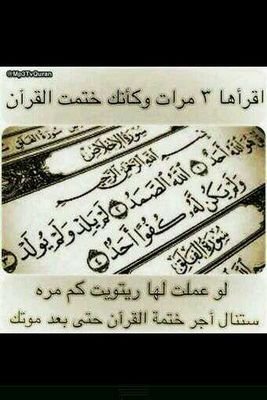 @Mp3TvQuran
اقرأها ٣ مرات وكأنك ختمت القرآن
سورة الإخلاص
بسم الله الرحمن الرحيم
قل هو الله أحد
الله الصمد لم يلد ولم يولد ٣
ولم يكن له كفوا أحد ٤
سورة الفلق
لو عملت لها ريتويت كم مره
ستنال أجر ختمة القرآن حتى بعد موتك